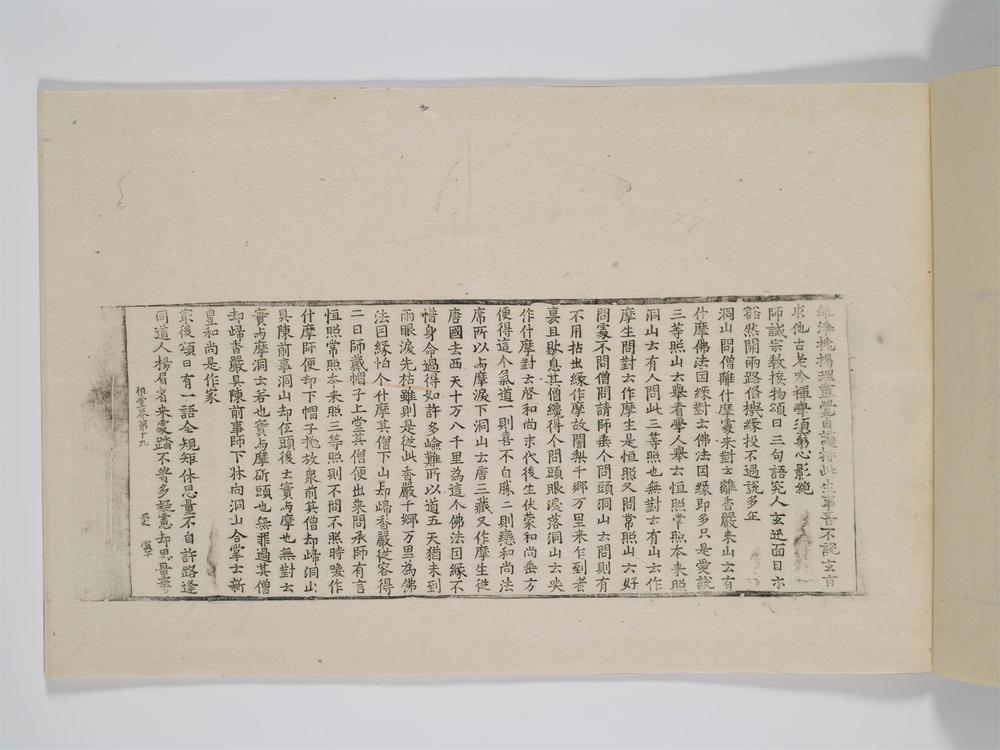 理盡覺自
求他古老吟禪學須窮心影絶
師誡宗教接物頌曰三句語究人玄迅面目示
豁然開兩路備機緣投不遇說多年
洞山問僧離什摩處來對云離香嚴來山云有
什摩佛法因緣對云佛法因緣即多只是愛說
三等照山云舉看學人舉云恒照常照本來照
洞山云有人問此三等照也無對云有山云作
摩生問對云作摩生是恒照又問常照山云好
問處不問僧問請師垂个問頭洞山云問則有
不用拈出緣作摩故闍梨千鄉万里來乍到者
裏且歇息其僧纔得个問頭眼淚落洞山云哭
作什摩對云啓和尚末代後生伏蒙和尚垂方
便得這个氣道一則喜不自勝二則戀和尚法
席所以与摩淚下洞山云唐三藏又作摩生從
唐國去西天十万八千里為這个佛法因緣不
惜身命過得如許多嶮難所以道五天猶未到
兩眼淚先枯雖則是從此香嚴千鄉万里為佛
法因緣怕个什摩其僧下山却歸香嚴從容得
二日師戴帽子上堂其僧便出來問承師有言
恒照常照本來照三等照則不問不照時喚作
什摩師便却下帽子抛放衆前其僧却歸洞山
具陳前事洞山却位頭後云實与摩也無對云
實与摩洞云若也實与摩斫頭也無罪過其僧
却歸香嚴具陳前事師下牀向洞山合掌云新
豐和尚是作家
最後頌曰有一語全規矩休思量不自許路逢
同道人揚眉省來處踏不著多疑慮却思量
祖堂集第十九